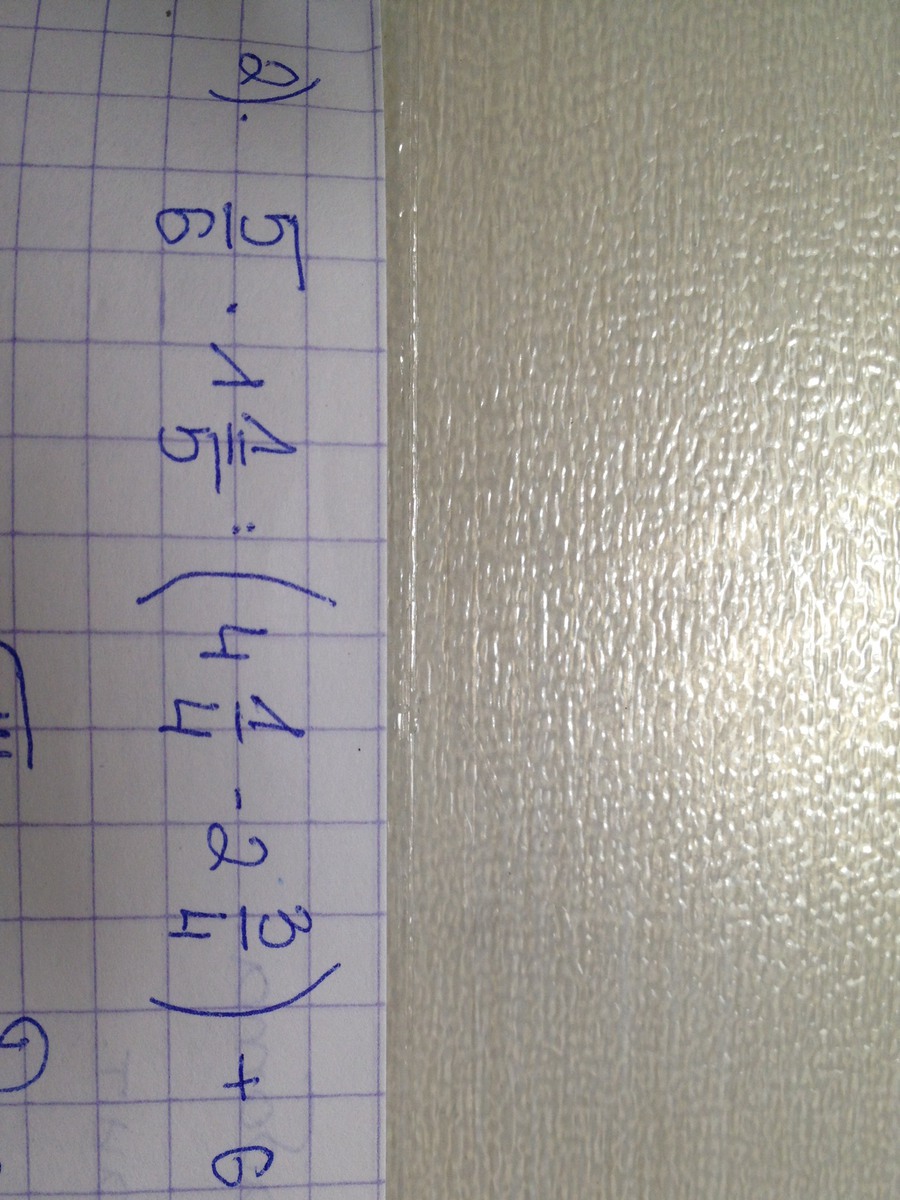 2). 5/6 · 1 1/5 : (4 1/4 - 2 3/4) + 6